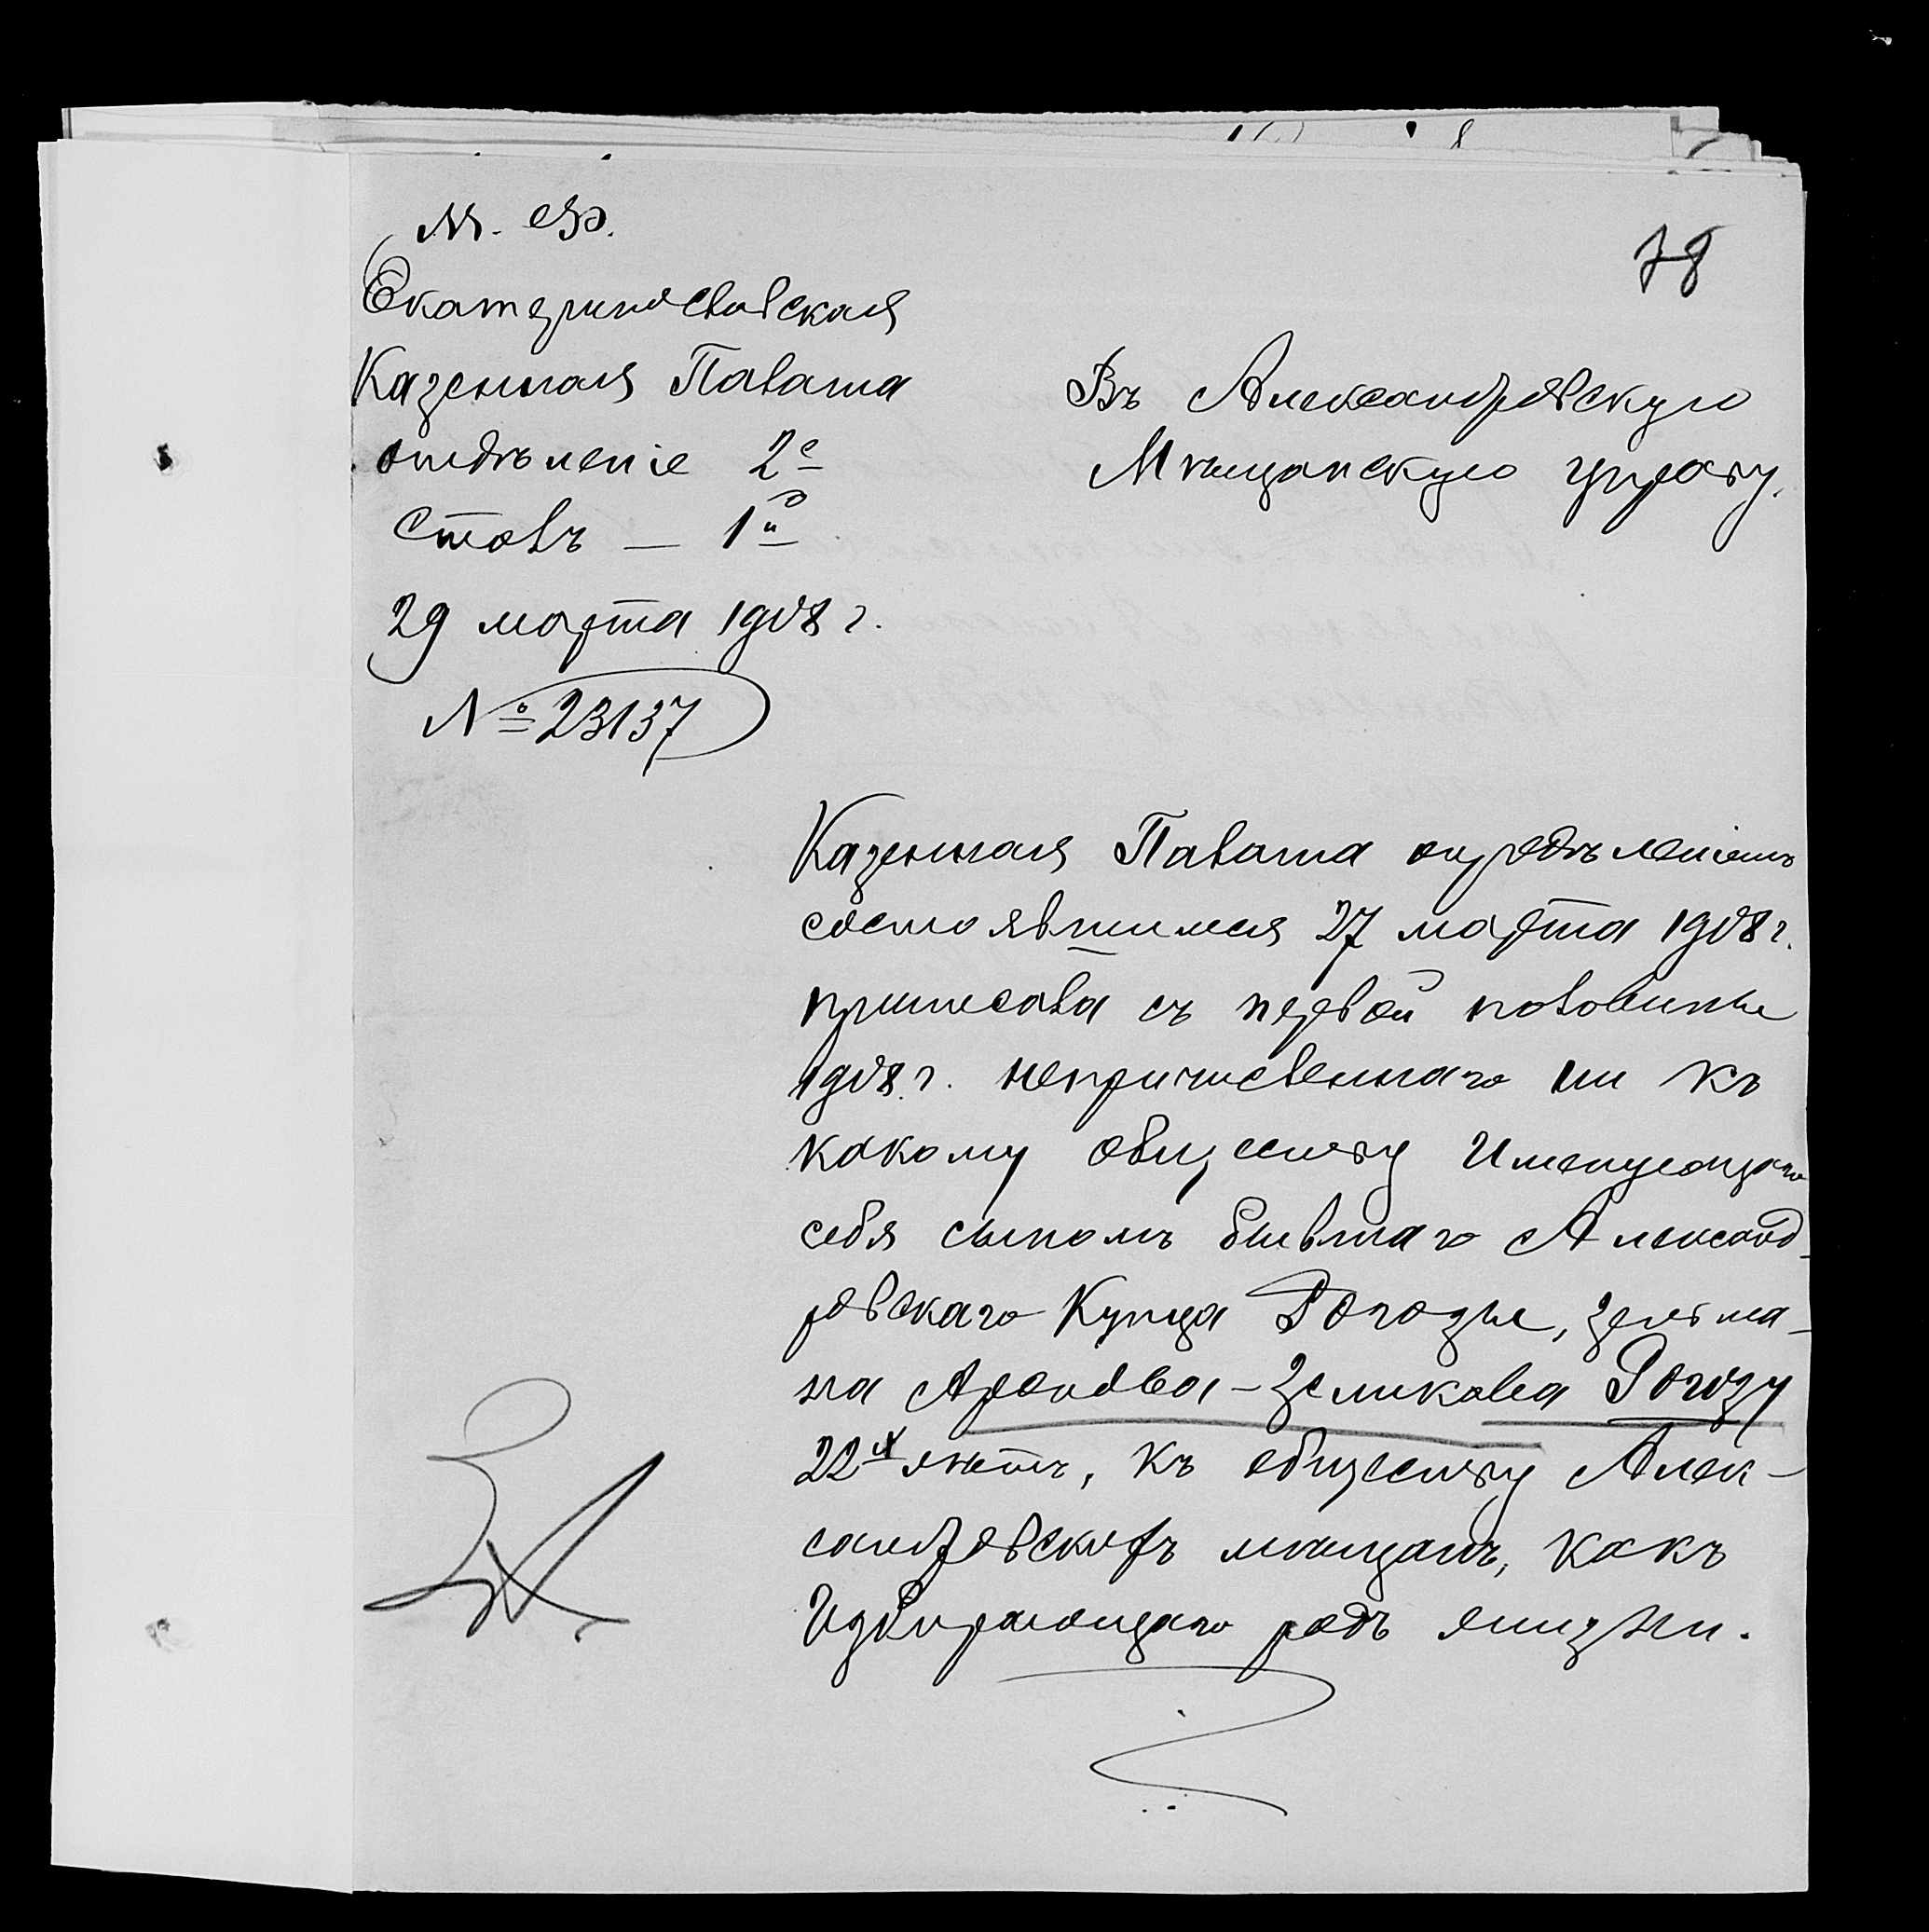 М. Ф.
78
Екатеринославская
Казенная Палата
отдѣленіе 2е
Столъ — 1й
29 марта 1908 г.
№ 23137
Въ Александровскую
Мѣщанскую управу.
Казенная Палата опредѣленіемъ
состоявшимся 27 марта 1908 г.
причислила съ первой половины
1908 г. непричисленнаго ни къ
какому обществу Именующаго
себя сыномъ бывшаго Александ-
ровскаго Купца Рогозы, Зельма-
на Аронова-Зеликова Рогозу
22х лѣтъ, къ обществу Алек-
сандровскихъ мѣщанъ, какъ
Избирающаго родъ жизни.